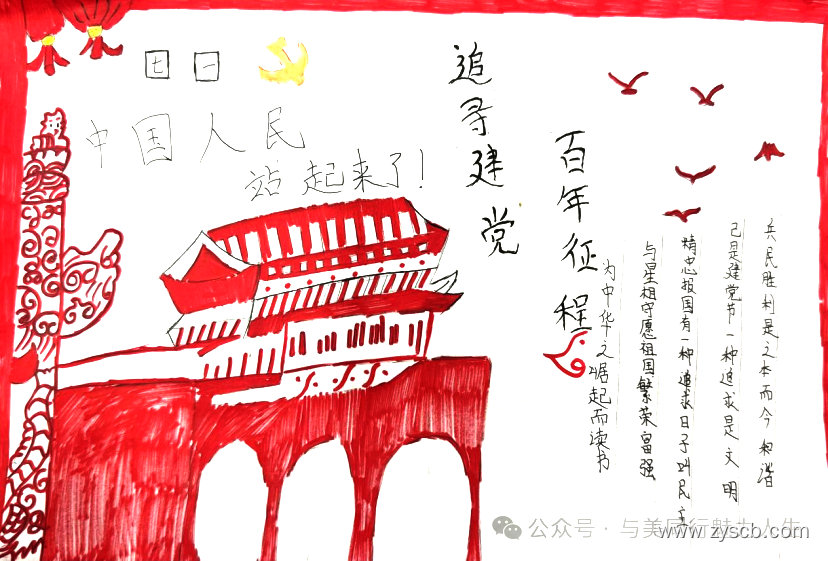 七一
中国人民
站起来了!
追寻建党
百年征程
兵民胜利是之本而今和谐
己是建党节一种追求是文明
精忠报国有一种追求日子叫民主
与星相守愿祖国繁荣富强
为中华之崛起而读书
公众号 · 与美同行魅力人生
www.zyscb.com